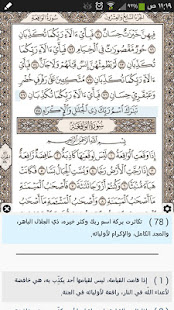 ١١:١٩ ص
فِيهِنَّ خَيْرَٰتٌ حِسَانٌ ٧٠ فَبِأَيِّ ءَالَآءِ رَبِّكُمَا تُكَذِّبَانِ
٧١ حُورٌ مَّقْصُورَٰتٌ فِي ٱلْخِيَامِ ٧٢ فَبِأَيِّ ءَالَآءِ رَبِّكُمَا تُكَذِّبَانِ
٧٣ لَمْ يَطْمِثْهُنَّ إِنسٌ قَبْلَهُمْ وَلَا جَآنٌّ ٧٤ فَبِأَيِّ ءَالَآءِ
رَبِّكُمَا تُكَذِّبَانِ ٧٥ مُتَّكِـِٔينَ عَلَىٰ رَفْرَفٍ خُضْرٍ
وَعَبْقَرِيٍّ حِسَانٍ ٧٦ فَبِأَيِّ ءَالَآءِ رَبِّكُمَا تُكَذِّبَانِ ٧٧
تَبَٰرَكَ ٱسْمُ رَبِّكَ ذِي ٱلْجَلَٰلِ وَٱلْإِكْرَامِ ٧٨
سُورَةُ الوَاقِعَةِ
بِسْمِ ٱللَّهِ ٱلرَّحْمَٰنِ ٱلرَّحِيمِ
إِذَا وَقَعَتِ ٱلْوَاقِعَةُ ١ لَيْسَ لِوَقْعَتِهَا كَاذِبَةٌ ٢ خَافِضَةٌ رَّافِعَةٌ
٣ إِذَا رُجَّتِ ٱلْأَرْضُ رَجًّا ٤ وَبُسَّتِ ٱلْجِبَالُ بَسًّا ٥ فَكَانَتْ هَبَآءً
مُّنۢبَثًّا ٦ وَكُنتُمْ أَزْوَٰجًا ثَلَٰثَةً ٧ فَأَصْحَٰبُ ٱلْمَيْمَنَةِ مَآ أَصْحَٰبُ
( 78 ) تكاثرت بركة اسم ربك وكثر خيره، ذي الجلال الباهر، والمجد الكامل، والإكرام لأوليائه.
( 1 ) إذا قامت القيامة، ليس لقيامها أحد يكذِّب به، هي خافضة لأعداء الله في النار، رافعة لأوليائه في الجنة.